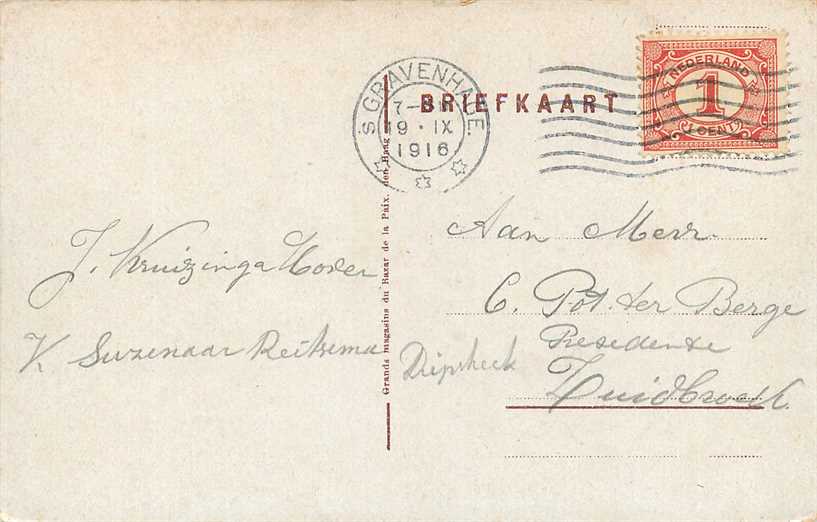 'S GRAVENHAGE.
7-
19·IX
1916
BRIEFKAART
NEDERLAND
1
(1 CENT)
Grands magasins du Bazar de la Paix. den Haag
J. Kruizinga
K Suzenaar Reitsema
Aan Mevr.
C. Pot. ter Berge
Presidente
Zuidbroek